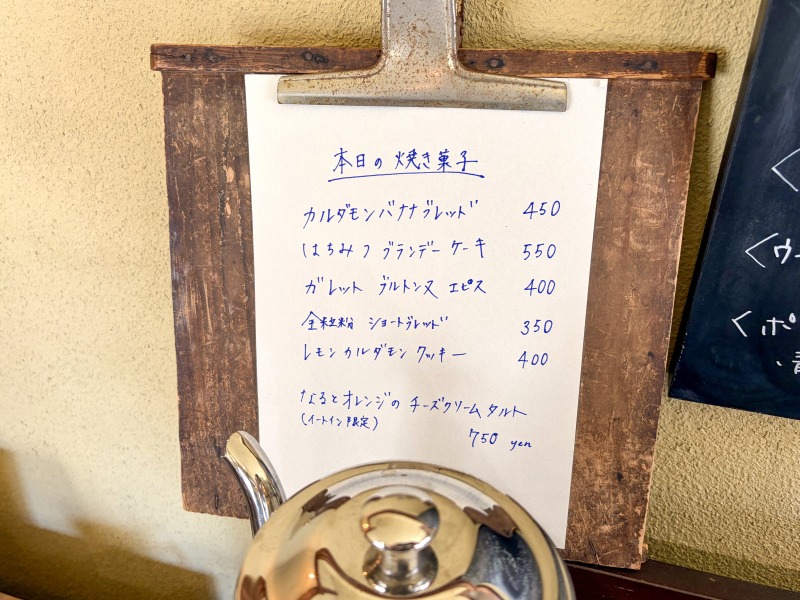 本日の焼き菓子
カルダモンバナナブレッド 450
はちみつ ブランデー ケーキ 550
ガレット ブルトンヌ エピス 400
全粒粉 ショートブレッド 350
レモン カルダモン クッキー 400
なるとオレンジの チーズクリームタルト
(イートイン限定)
750 yen
<
<ウ
<ポ
・